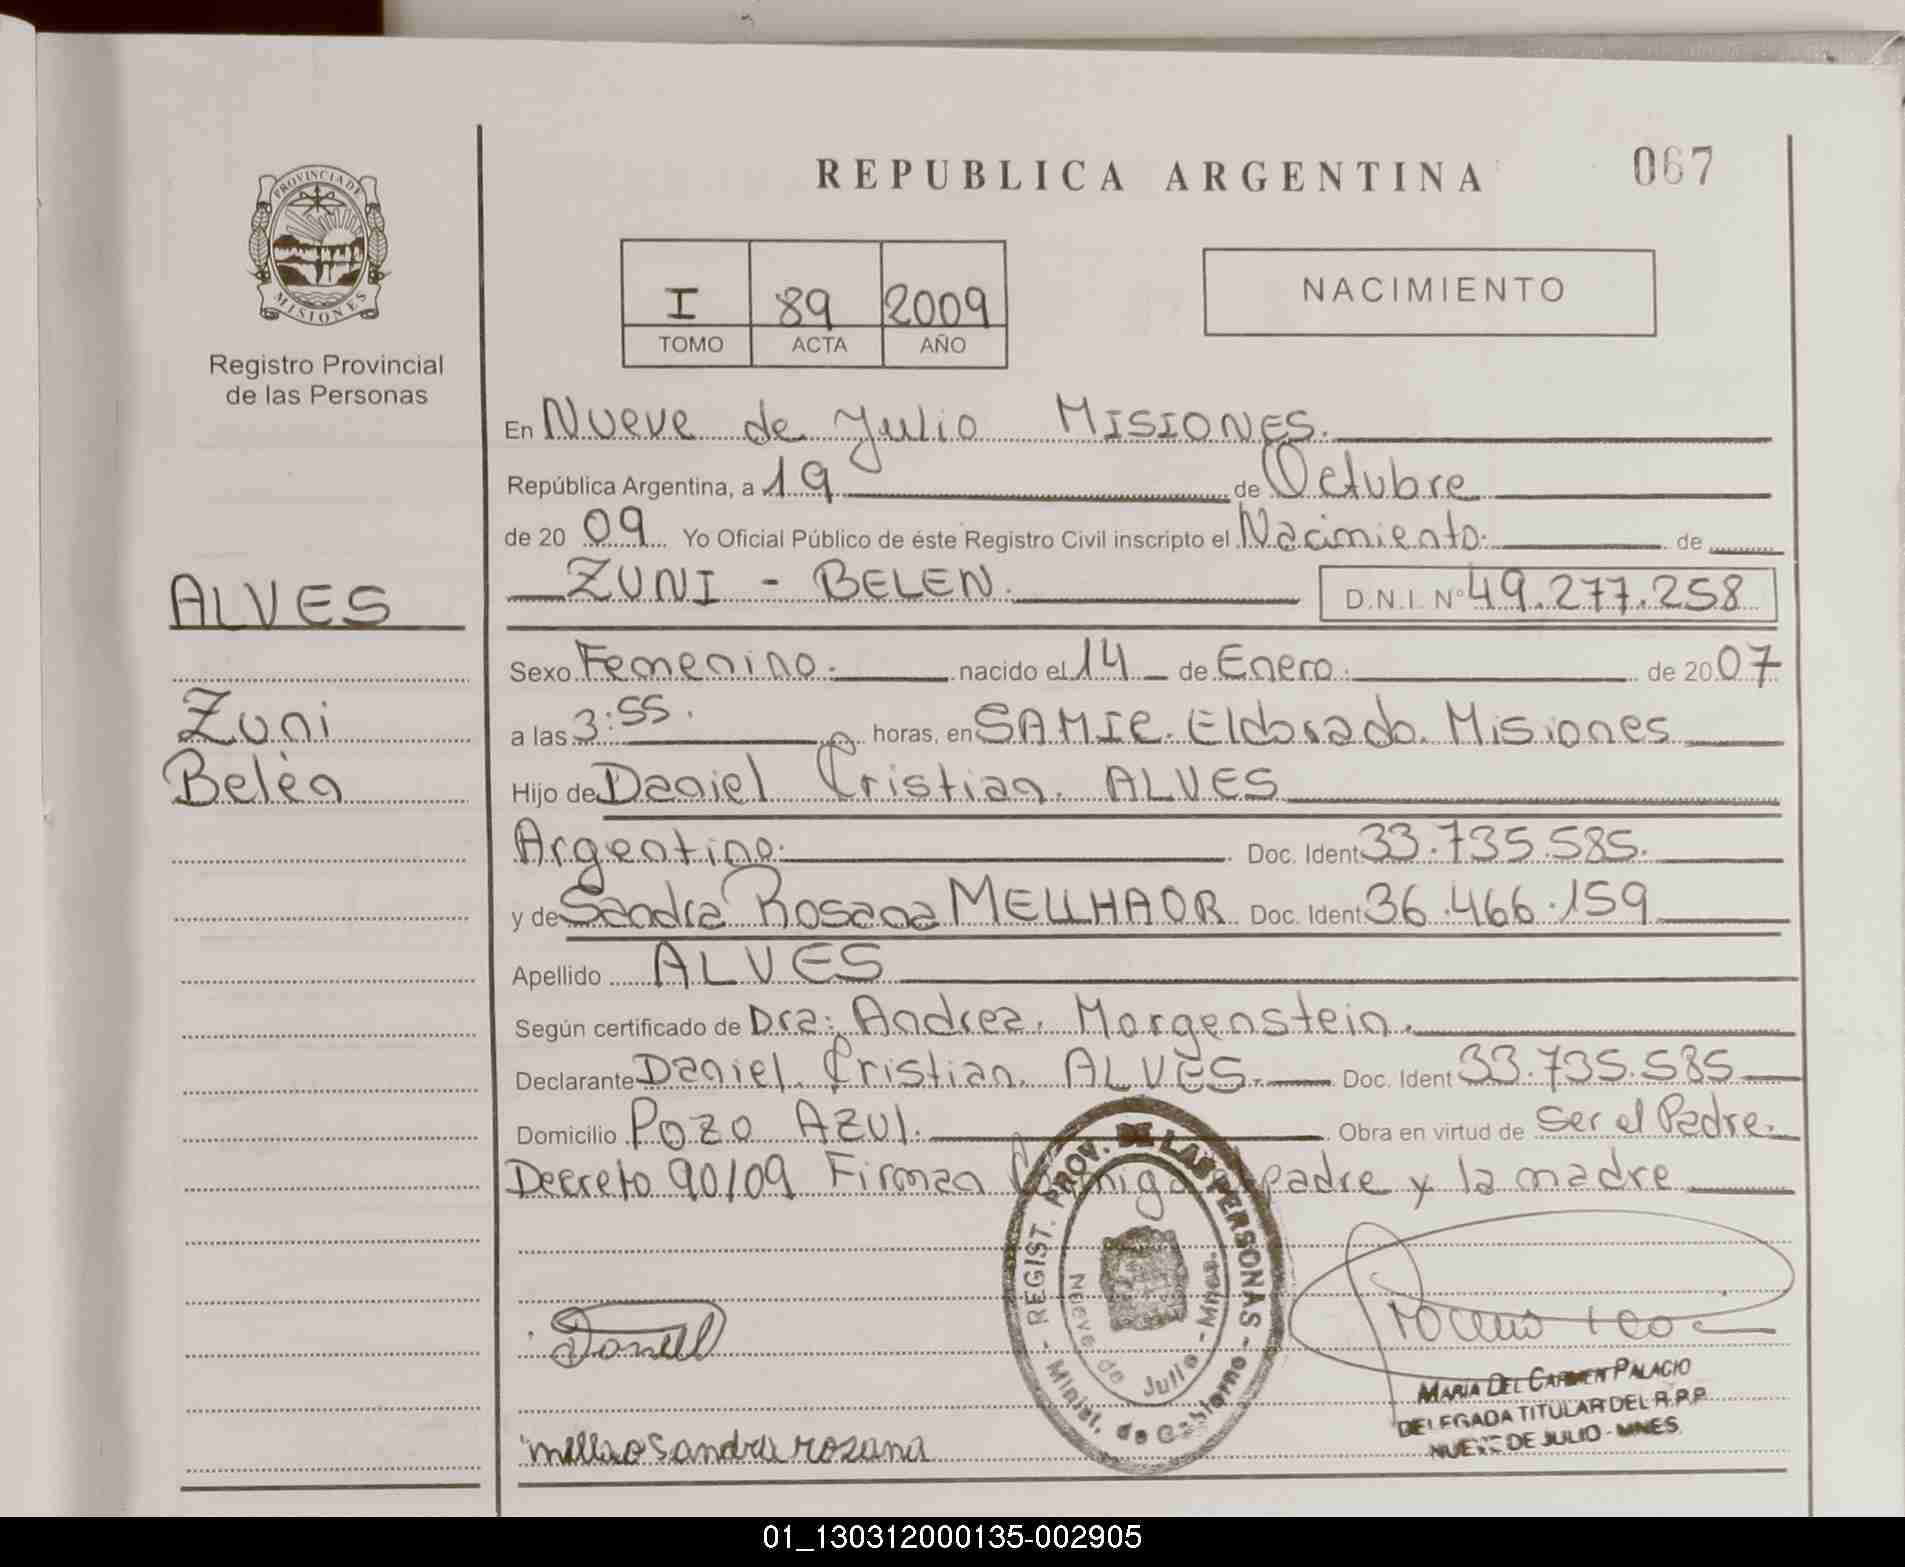 REPUBLICA ARGENTINA
067
PROVINCIA DE
MISIONES
Registro Provincial
de las Personas
I 89 2009
TOMO ACTA AÑO
NACIMIENTO
En Nueve de Julio MISIONES.
República Argentina, a 19 de Octubre
de 20 09 Yo Oficial Público de éste Registro Civil inscripto el Nacimiento. de
ZUNI - BELEN. D.N.I. Nº 49.277.258
ALVES
Zuni
Belén
Sexo Femenino. nacido el 14 de Enero. de 2007
a las 3:55. horas, en SAMIC. Eldorado. Misiones
Hijo de Daniel Cristian. ALVES
Argentino. Doc. Ident 33.735.585.
y de Sandra Rosana MELLHAOR Doc. Ident 36.466.159
Apellido ALVES
Según certificado de Dra: Andrea. Morgenstein.
Declarante Daniel. Cristian. ALVES. Doc. Ident 33.735.585
Domicilio POZO AZUL. Obra en virtud de ser el Padre.
Decreto 90/09 Firman padre y la madre
REGIST. PROV. DE LAS PERSONAS - Minist. de Gobierno -
Nueve de Julio - Mnes.
sandra rozana
MARIA DEL CARMEN PALACIO
DELEGADA TITULAR DEL R.P.P
NUEVE DE JULIO - MNES.
01_130312000135-002905